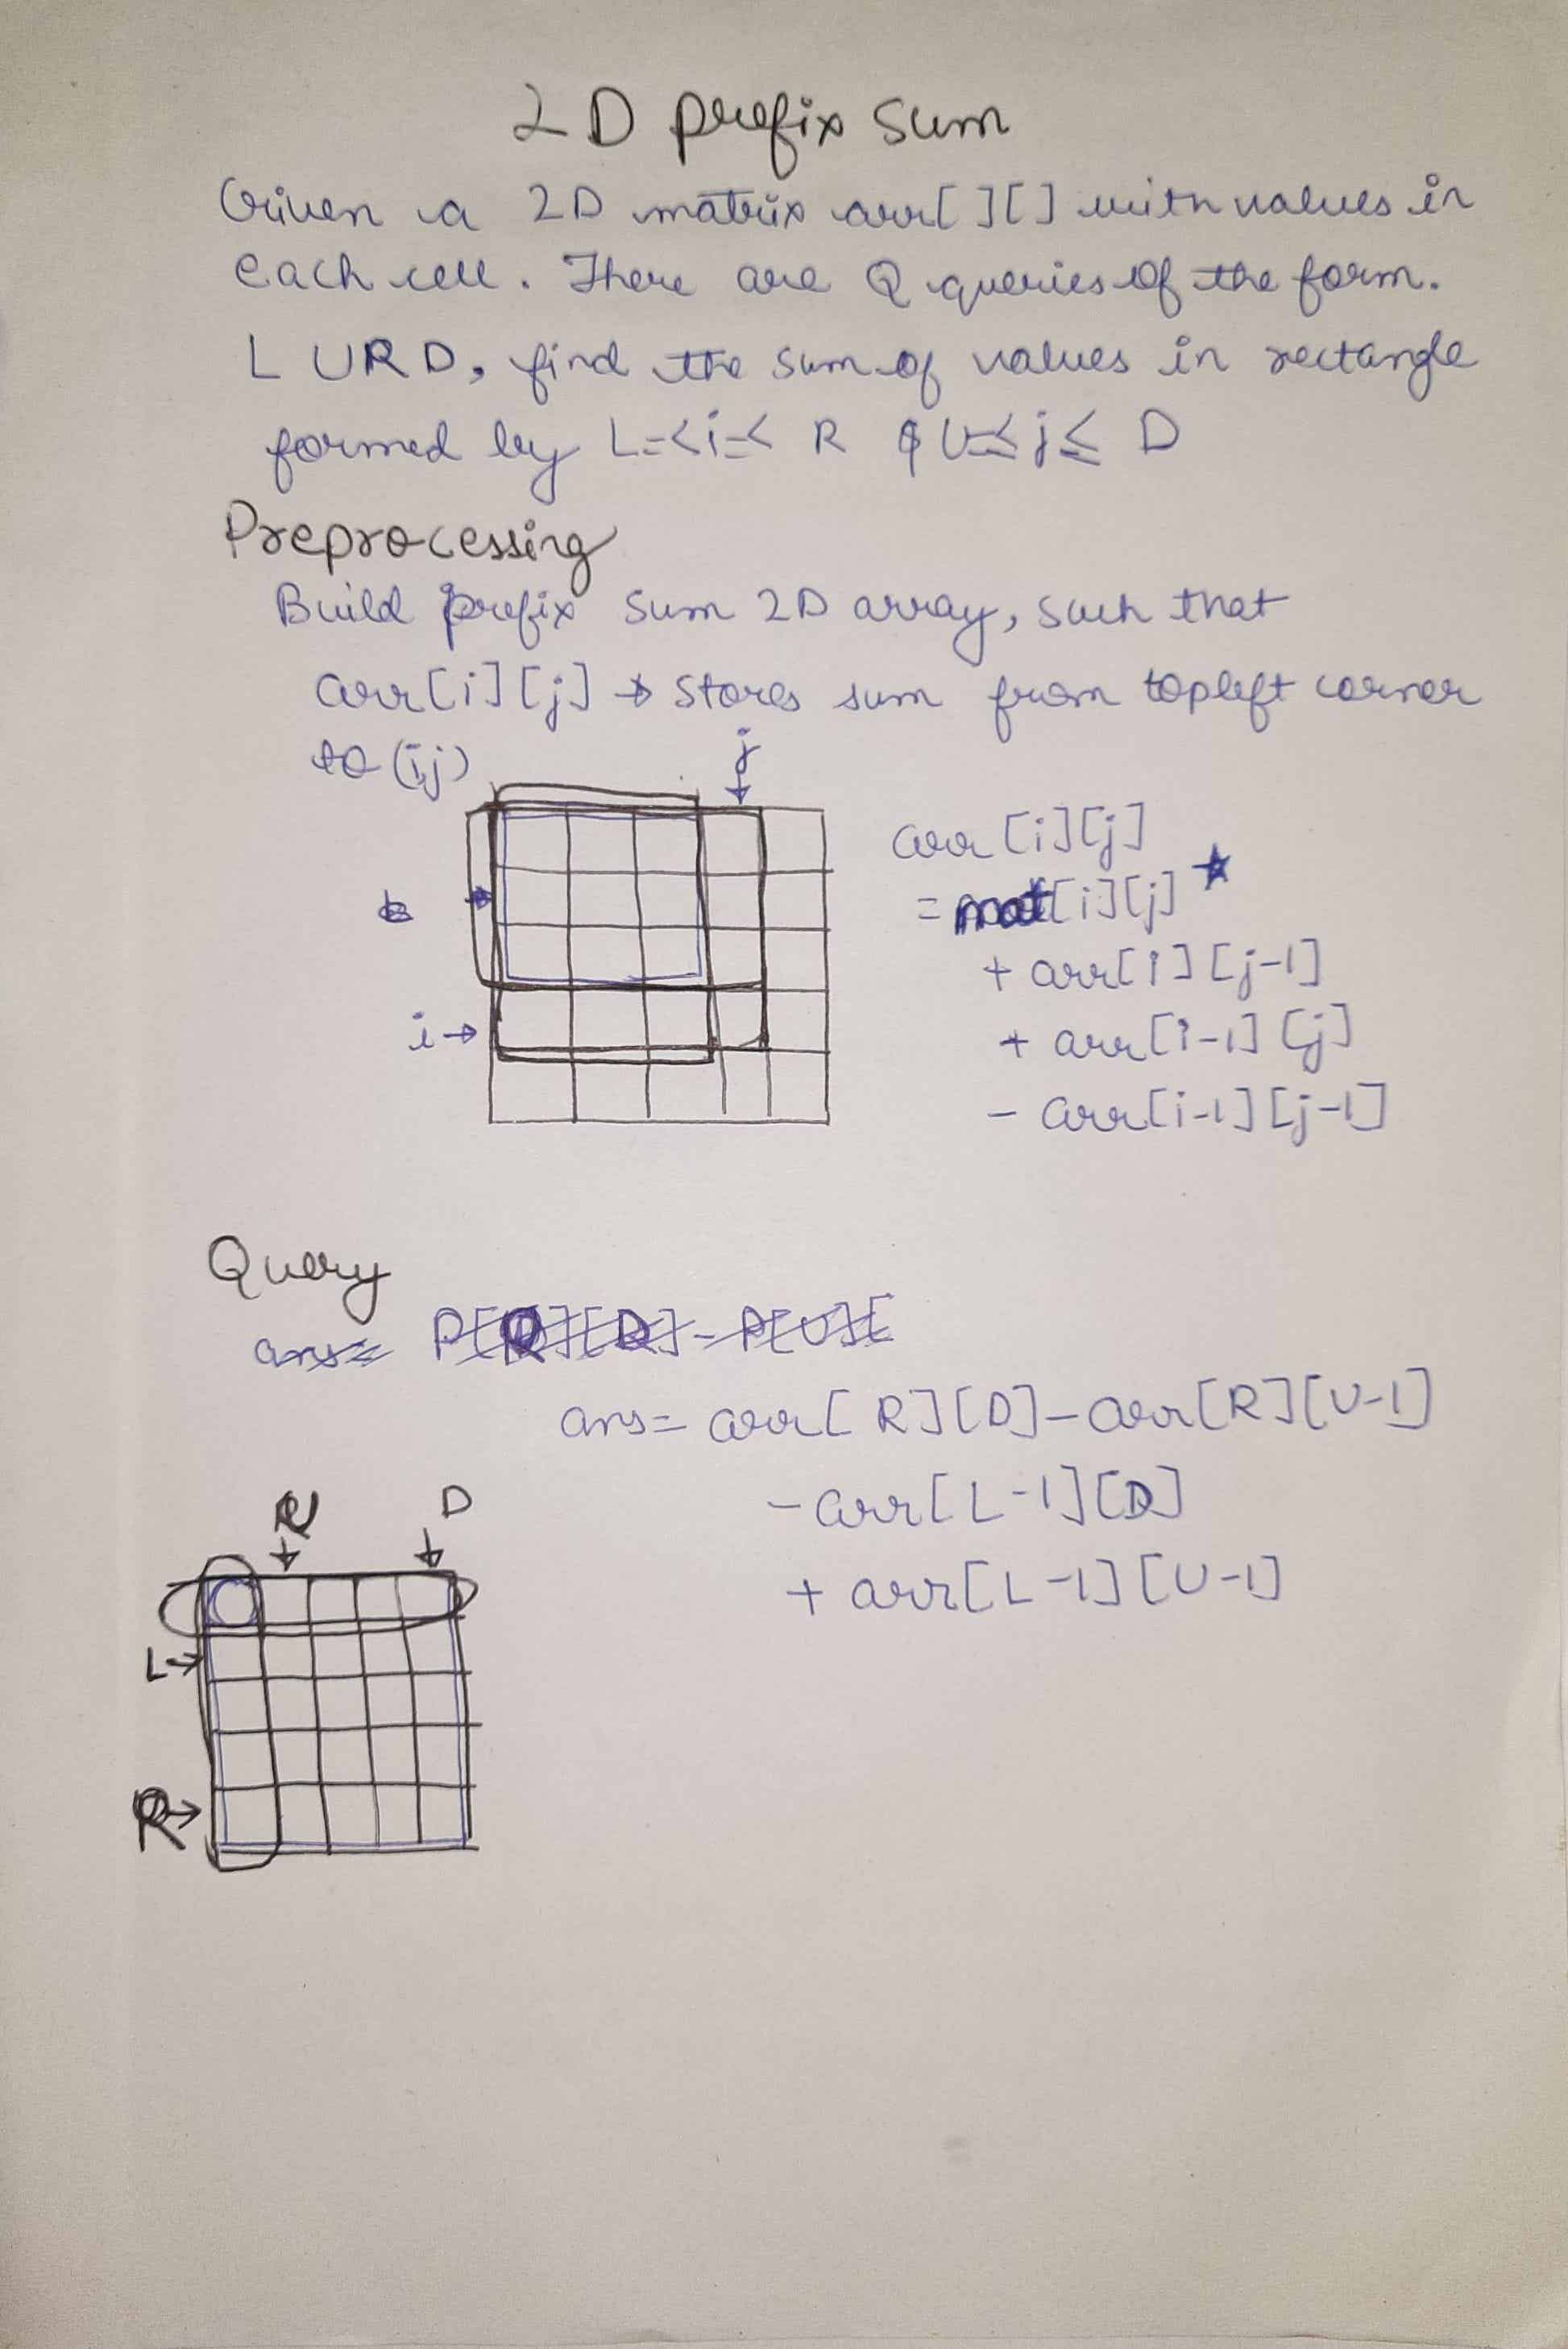 2D prefix sum
Given a 2D matrix arr[][] with values in
each cell. There are Q queries of the form.
L U R D, find the sum of values in rectangle
formed by L=<i=< R & U≤j≤ D
Preprocessing
Build prefix sum 2D array, such that
arr[i][j] → stores sum from topleft corner
to (i,j)
j
arr[i][j]
= mat[i][j] ★
+ arr[i][j-1]
i→
+ arr[i-1][j]
- arr[i-1][j-1]
Query
ans= P[R][D]-P[U][
ans= arr[R][D]-arr[R][U-1]
-arr[L-1][D]
+ arr[L-1][U-1]
D
L→
R→